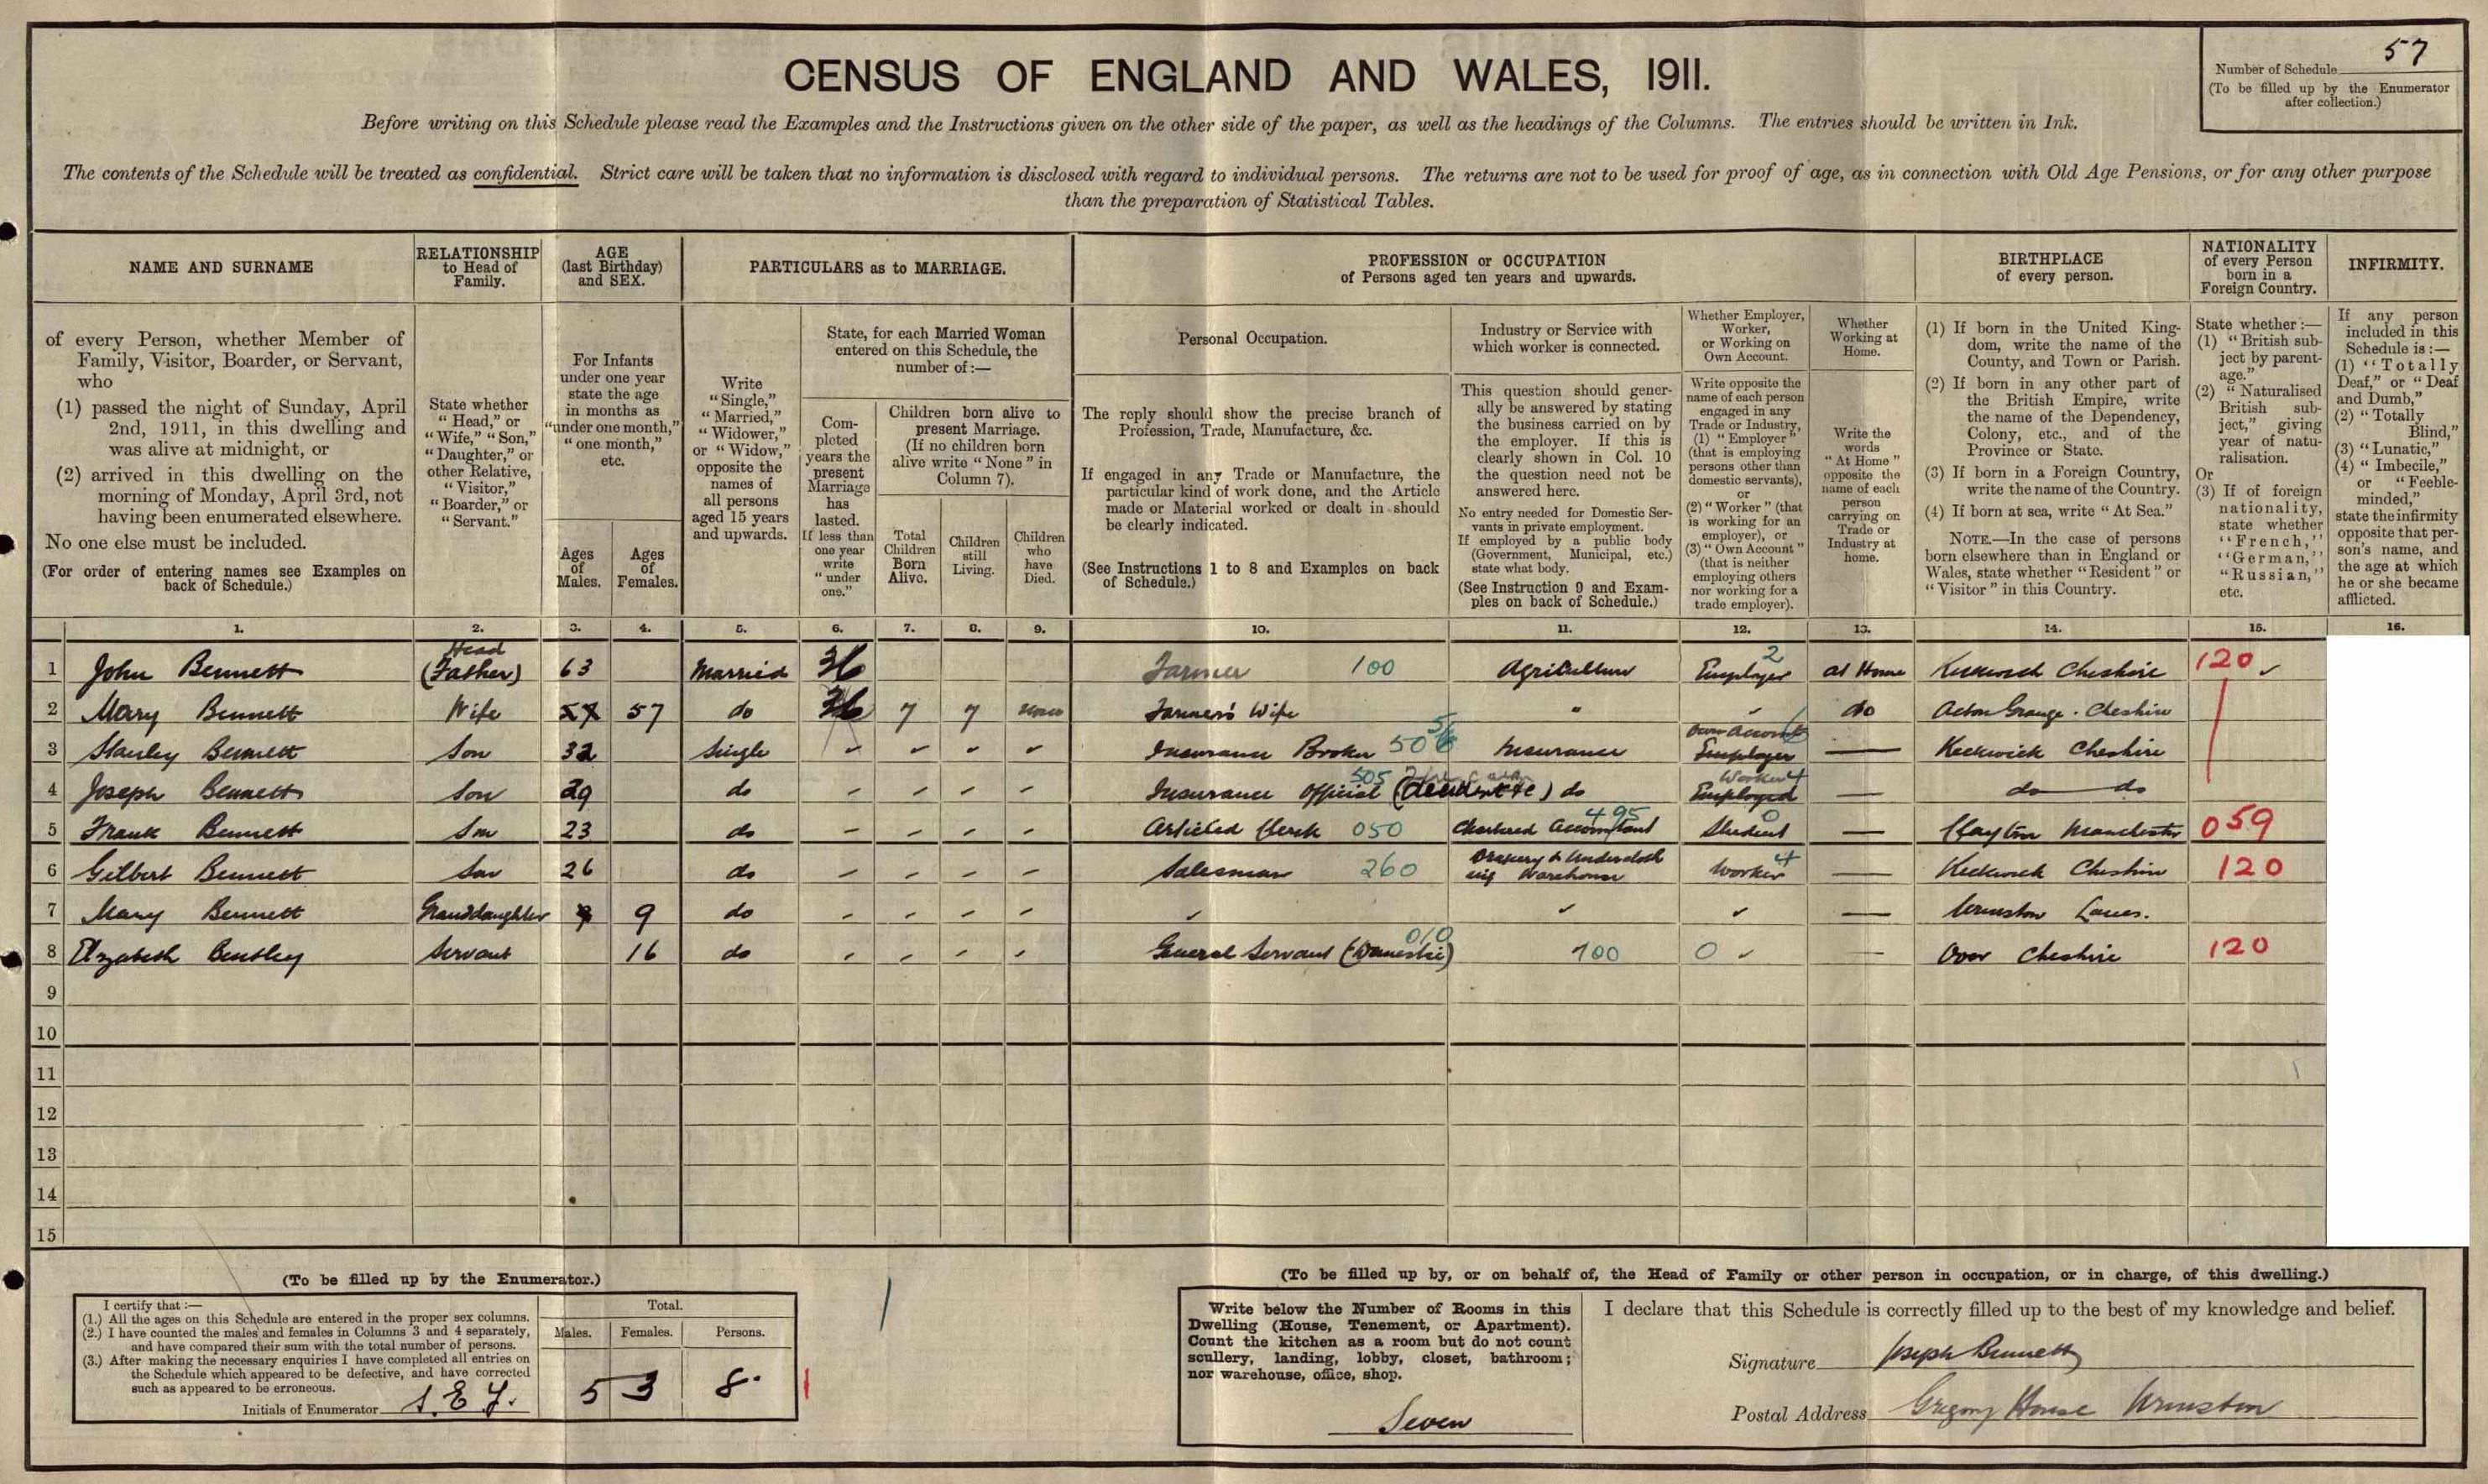 CENSUS OF ENGLAND AND WALES, 1911.
Number of Schedule 57
(To be filled up by the Enumerator
after collection.)
Before writing on this Schedule please read the Examples and the Instructions given on the other side of the paper, as well as the headings of the Columns. The entries should be written in Ink.
The contents of the Schedule will be treated as confidential. Strict care will be taken that no information is disclosed with regard to individual persons. The returns are not to be used for proof of age, as in connection with Old Age Pensions, or for any other purpose
than the preparation of Statistical Tables.
NAME AND SURNAME
of every Person, whether Member of
Family, Visitor, Boarder, or Servant,
who
(1) passed the night of Sunday, April
2nd, 1911, in this dwelling and
was alive at midnight, or
(2) arrived in this dwelling on the
morning of Monday, April 3rd, not
having been enumerated elsewhere.
No one else must be included.
(For order of entering names see Examples on
back of Schedule.)
RELATIONSHIP
to Head of
Family.
State whether
"Head," or
"Wife," "Son,"
"Daughter," or
other Relative,
"Visitor,"
"Boarder," or
"Servant."
AGE
(last Birthday)
and SEX.
For Infants
under one year
state the age
in months as
"under one month,"
"one month,"
etc.
Ages
of
Males.
Ages
of
Females.
PARTICULARS as to MARRIAGE.
Write
"Single,"
"Married,"
"Widower,"
or "Widow,"
opposite the
names of
all persons
aged 15 years
and upwards.
State, for each Married Woman
entered on this Schedule, the
number of:—
Com-
pleted
years the
present
Marriage
has
lasted.
If less than
one year
write
"under
one."
Children born alive to
present Marriage.
(If no children born
alive write "None" in
Column 7).
Total
Children
Born
Alive.
Children
still
Living.
Children
who
have
Died.
PROFESSION or OCCUPATION
of Persons aged ten years and upwards.
Personal Occupation.
The reply should show the precise branch of
Profession, Trade, Manufacture, &c.
If engaged in any Trade or Manufacture, the
particular kind of work done, and the Article
made or Material worked or dealt in should
be clearly indicated.
(See Instructions 1 to 8 and Examples on back
of Schedule.)
Industry or Service with
which worker is connected.
This question should gener-
ally be answered by stating
the business carried on by
the employer. If this is
clearly shown in Col. 10
the question need not be
answered here.
No entry needed for Domestic Ser-
vants in private employment.
If employed by a public body
(Government, Municipal, etc.)
state what body.
(See Instruction 9 and Exam-
ples on back of Schedule.)
Whether Employer,
Worker,
or Working on
Own Account.
Write opposite the
name of each person
engaged in any
Trade or Industry,
(1) "Employer"
(that is employing
persons other than
domestic servants),
or
(2) "Worker" (that
is working for an
employer), or
(3) "Own Account"
(that is neither
employing others
nor working for a
trade employer).
Whether
Working at
Home.
Write the
words
"At Home"
opposite the
name of each
person
carrying on
Trade or
Industry at
home.
BIRTHPLACE
of every person.
(1) If born in the United King-
dom, write the name of the
County, and Town or Parish.
(2) If born in any other part of
the British Empire, write
the name of the Dependency,
Colony, etc., and of the
Province or State.
(3) If born in a Foreign Country,
write the name of the Country.
(4) If born at sea, write "At Sea."
NOTE.—In the case of persons
born elsewhere than in England or
Wales, state whether "Resident" or
"Visitor" in this Country.
NATIONALITY
of every Person
born in a
Foreign Country.
State whether:—
(1) "British sub-
ject by parent-
age."
(2) "Naturalised
British sub-
ject," giving
year of natu-
ralisation.
Or
(3) If of foreign
nationality,
state whether
"French,"
"German,"
"Russian,"
etc.
INFIRMITY.
If any person
included in this
Schedule is:—
(1) "Totally
Deaf," or "Deaf
and Dumb,"
(2) "Totally
Blind,"
(3) "Lunatic,"
(4) "Imbecile,"
or "Feeble-
minded,"
state the infirmity
opposite that per-
son's name, and
the age at which
he or she became
afflicted.
1. 2. 3. 4. 5. 6. 7. 8. 9. 10. 11. 12. 13. 14. 15. 16.
1 John Bennett Head (Father) 63 Married 36 Farmer 100 Agriculture Employer 2 at Home Keckwick Cheshire 120
2 Mary Bennett Wife 57 57 do 36 7 7 none Farmer's Wife do Acton Grange. Cheshire
3 Stanley Bennett Son 32 Single Insurance Broker 50 Insurance Own Account Employer Keckwick Cheshire
4 Joseph Bennett Son 29 do Insurance Official 505 (Accident etc) do Worker 4 Employed do do
5 Frank Bennett Son 23 do Articled Clerk 050 Chartered Accountant 495 Student 0 Clayton Manchester 059
6 Gilbert Bennett Son 26 do Salesman 260 Drapery & Undercloth
ing Warehouse Worker 4 Keckwick Cheshire 120
7 Mary Bennett Granddaughter 9 9 do Urmston Lancs.
8 Elizabeth Bentley Servant 16 do General Servant (Domestic) 010 700 0 Over Cheshire 120
9
10
11
12
13
14
15
(To be filled up by the Enumerator.)
I certify that:—
(1.) All the ages on this Schedule are entered in the proper sex columns.
(2.) I have counted the males and females in Columns 3 and 4 separately,
and have compared their sum with the total number of persons.
(3.) After making the necessary enquiries I have completed all entries on
the Schedule which appeared to be defective, and have corrected
such as appeared to be erroneous.
Initials of Enumerator S. E. Y.
Total.
Males. Females. Persons.
5 3 8
(To be filled up by, or on behalf of, the Head of Family or other person in occupation, or in charge, of this dwelling.)
Write below the Number of Rooms in this
Dwelling (House, Tenement, or Apartment).
Count the kitchen as a room but do not count
scullery, landing, lobby, closet, bathroom;
nor warehouse, office, shop.
Seven
I declare that this Schedule is correctly filled up to the best of my knowledge and belief.
Signature Joseph Bennett
Postal Address Gregory House Urmston